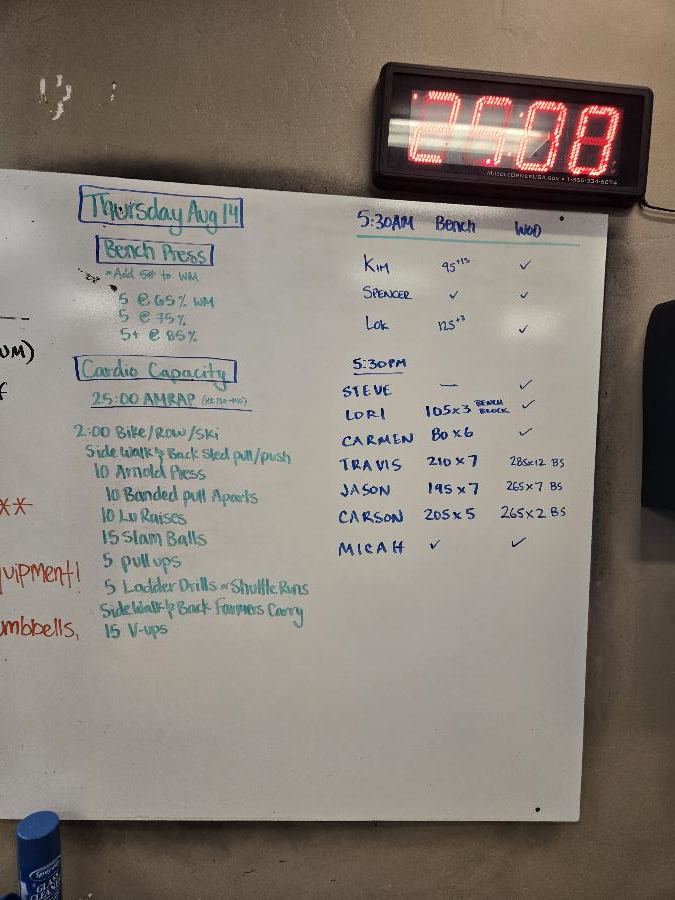 25:00
MUSCLEDRIVERUSA.COM • 1-866-334-6094
Thursday Aug 14
Bench Press
*Add 5# to WM
5 @ 65% WM
5 @ 75%
5+ @ 85%
Cardio Capacity
25:00 AMRAP
2:00 Bike/Row/Ski
Side Walk & Back Sled pull/push
10 Arnold Press
10 Banded pull Aparts
10 Lu Raises
15 Slam Balls
5 pull ups
5 Ladder Drills or Shuttle Runs
SideWalk & Back Farmers Carry
15 V-ups
5:30AM Bench WOD
KIM 95+15 ✓
SPENCER ✓ ✓
Lok 125+2 ✓
5:30PM
STEVE — ✓
LORI 105x3 BENCH BLOCK ✓
CARMEN 80x6 ✓
TRAVIS 210x7 285x12 BS
JASON 195x7 265x7 BS
CARSON 205x5 265x2 BS
MICAH ✓ ✓
UM)
f
**
quipment!
umbbells,
Spray
GLASS
CLEANER